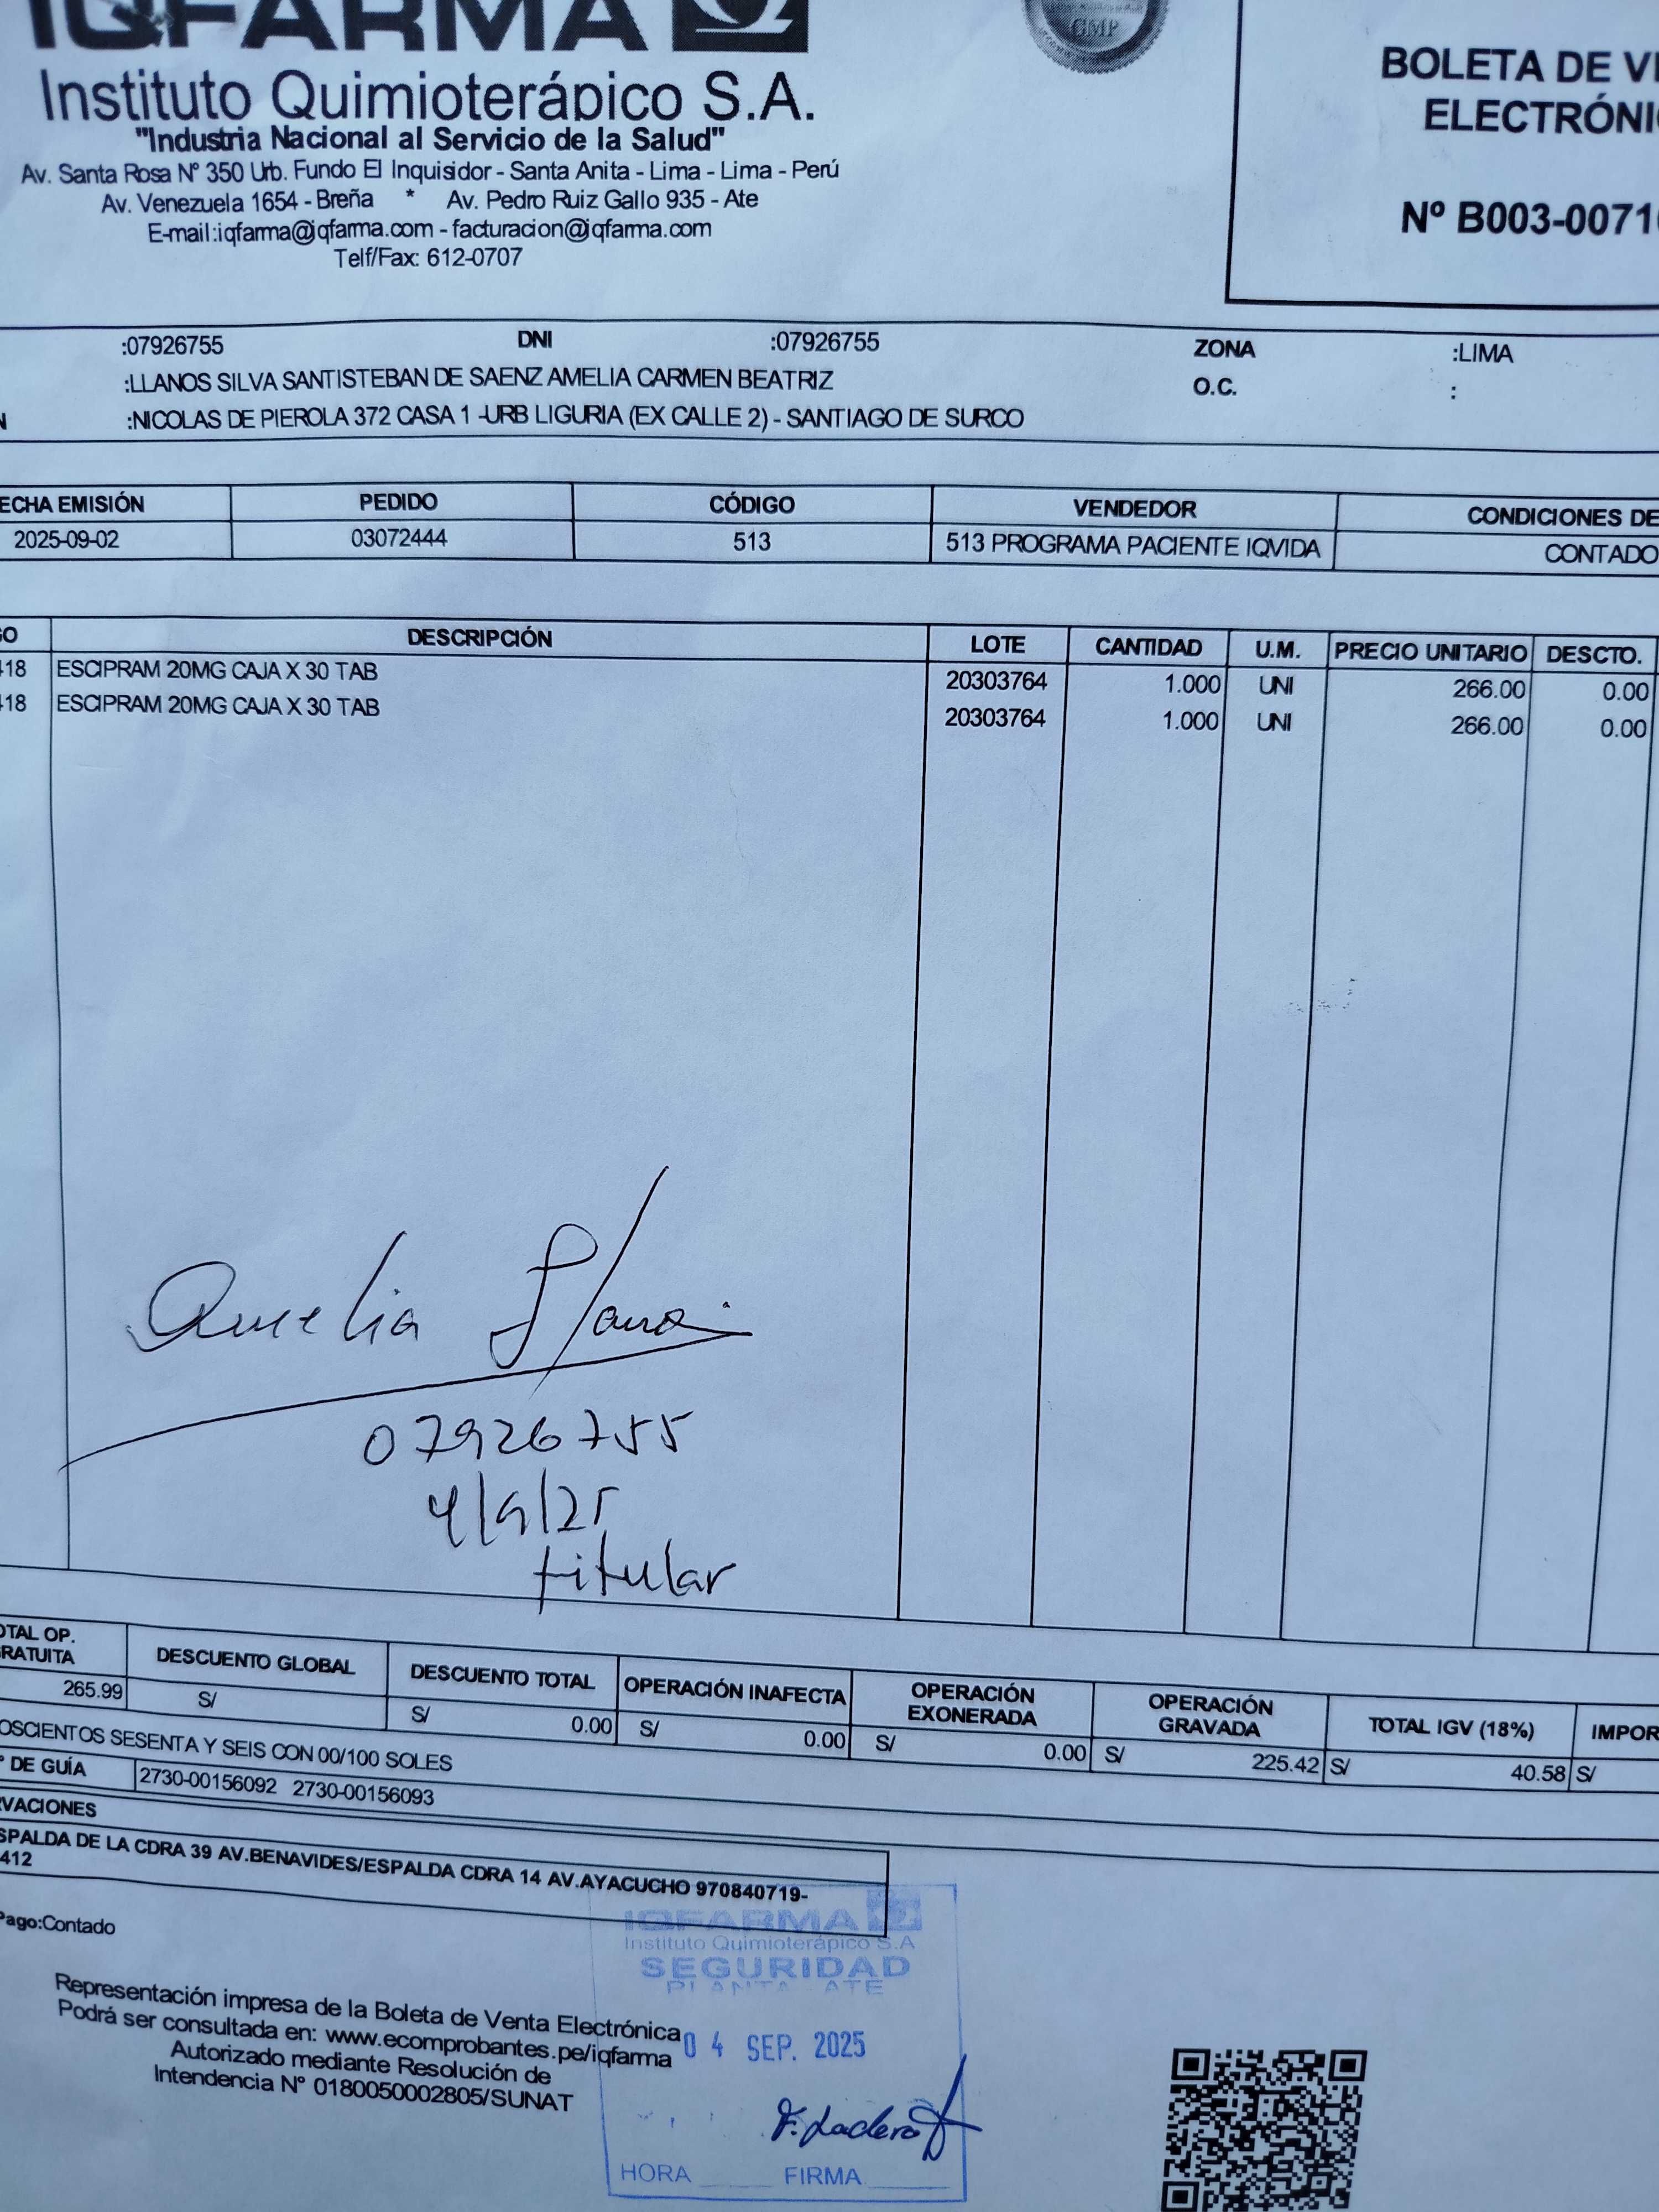 IQFARMA
GMP
Instituto Quimioterápico S.A.
"Industria Nacional al Servicio de la Salud"
Av. Santa Rosa Nº 350 Urb. Fundo El Inquisidor - Santa Anita - Lima - Lima - Perú
Av. Venezuela 1654 - Breña * Av. Pedro Ruiz Gallo 935 - Ate
E-mail:iqfarma@iqfarma.com - facturacion@iqfarma.com
Telf/Fax: 612-0707
BOLETA DE VE
ELECTRÓNI
Nº B003-0071
:07926755 DNI :07926755 ZONA :LIMA
:LLANOS SILVA SANTISTEBAN DE SAENZ AMELIA CARMEN BEATRIZ O.C. :
N :NICOLAS DE PIEROLA 372 CASA 1 -URB LIGURIA (EX CALLE 2) - SANTIAGO DE SURCO
ECHA EMISIÓN PEDIDO CÓDIGO VENDEDOR CONDICIONES DE
2025-09-02 03072444 513 513 PROGRAMA PACIENTE IQVIDA CONTADO
GO DESCRIPCIÓN LOTE CANTIDAD U.M. PRECIO UNITARIO DESCTO.
418 ESCIPRAM 20MG CAJA X 30 TAB 20303764 1.000 UNI 266.00 0.00
418 ESCIPRAM 20MG CAJA X 30 TAB 20303764 1.000 UNI 266.00 0.00
Amelia Llanos
07926755
4/9/25
titular
OTAL OP. GRATUITA DESCUENTO GLOBAL DESCUENTO TOTAL OPERACIÓN INAFECTA OPERACIÓN EXONERADA OPERACIÓN GRAVADA TOTAL IGV (18%) IMPOR
265.99 S/ S/ 0.00 S/ 0.00 S/ 0.00 S/ 225.42 S/ 40.58 S/
OSCIENTOS SESENTA Y SEIS CON 00/100 SOLES
º DE GUÍA 2730-00156092 2730-00156093
RVACIONES
SPALDA DE LA CDRA 39 AV.BENAVIDES/ESPALDA CDRA 14 AV.AYACUCHO 970840719-
412
Pago:Contado
IQFARMA
Instituto Quimioterápico S.A
SEGURIDAD
PLANTA ATE
04 SEP. 2025
HORA FIRMA
Representación impresa de la Boleta de Venta Electrónica
Podrá ser consultada en: www.ecomprobantes.pe/iqfarma
Autorizado mediante Resolución de
Intendencia Nº 0180050002805/SUNAT